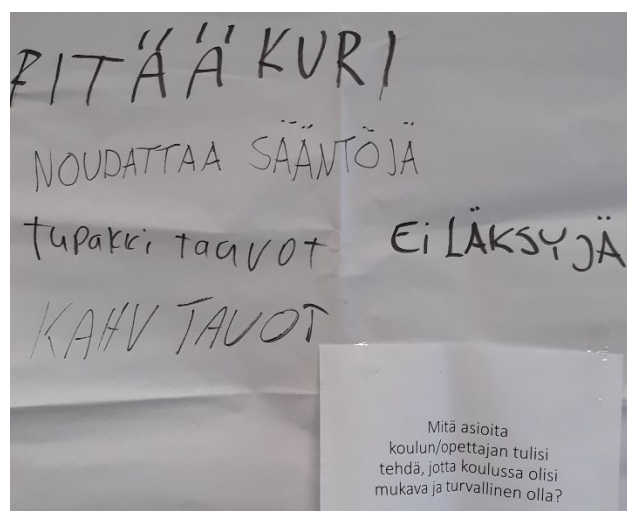 PITÄÄ KURI
NOUDATTAA SÄÄNTÖJÄ
tupakki taavot
Ei LÄKSYJÄ
KAHV TAVOT
Mitä asioita
koulun/opettajan tulisi
tehdä, jotta koulussa olisi
mukava ja turvallinen olla?